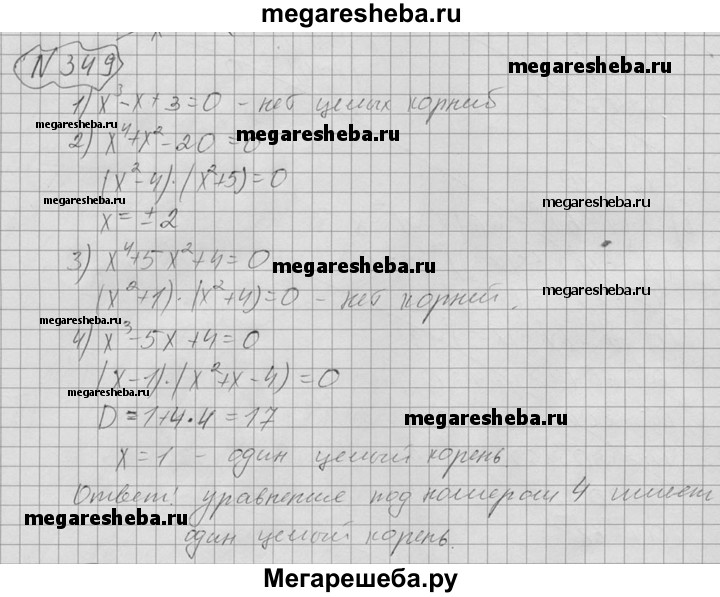 megaresheba.ru
N 349
megaresheba.ru
1) x³ - x + 3 = 0 - нет целых корниб
megaresheba.ru
megaresheba.ru
2) x⁴ + x² - 20 = 0
(x² - 4) · (x² + 5) = 0
megaresheba.ru
megaresheba.ru
x = ± 2
3) x⁴ + 5x² + 4 = 0
megaresheba.ru
(x² + 1) · (x² + 4) = 0 - нет корний.
megaresheba.ru
megaresheba.ru
4) x³ - 5x + 4 = 0
(x - 1) · (x² + x - 4) = 0
megaresheba.ru
D = 1 + 4 · 4 = 17
megaresheba.ru
x = 1 - один целый корень
Ответ: уравнение под номером 4 имеет
megaresheba.ru
один целый корень.
megaresheba.ru
Мегарешеба.ру